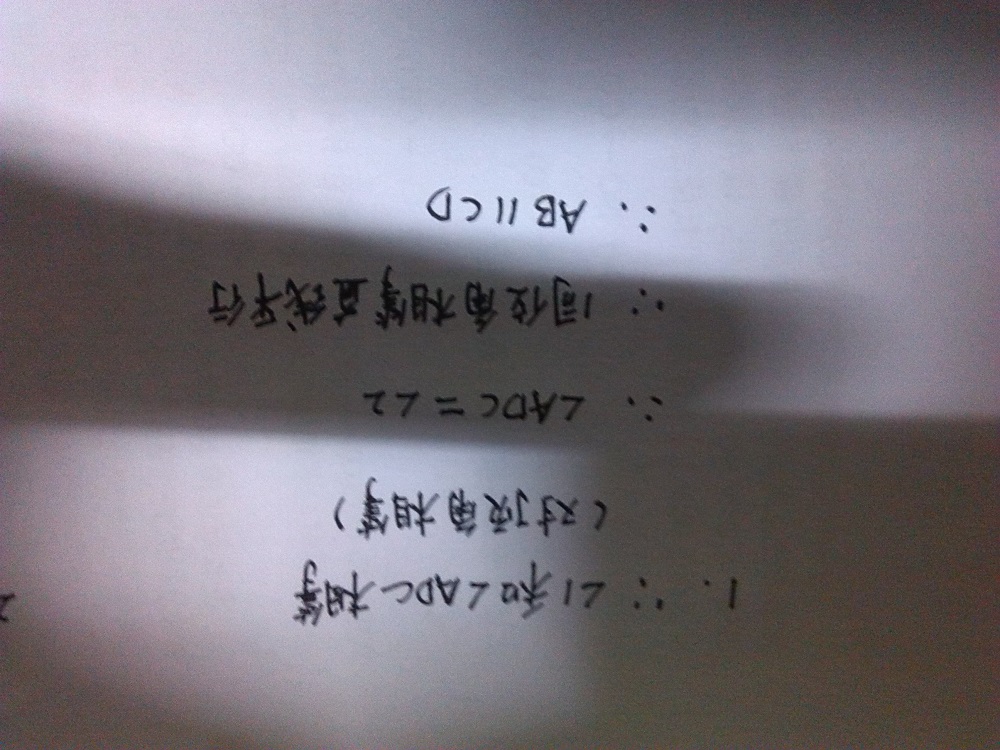 1. ∵ ∠1和∠ADC相等
(对顶角相等)
∴ ∠ADC=∠2
∵ 同位角相等直线平行
∴ AB∥CD
2